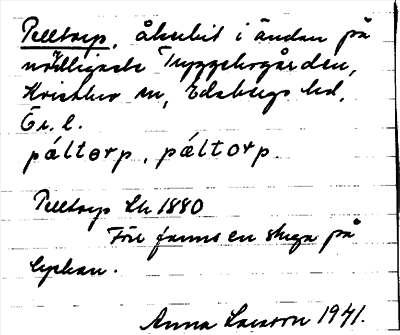 Pelltorp, åkerbit i ändan på
nordligaste Tryggetorgården,
Kvistbro sn, Edsbergs hd,
Ör. l.
páltɵrp, páltorp
Pelltorp Lk 1880
Förr fanns en stuga på
lyckan.
Anna Larsson 1941.